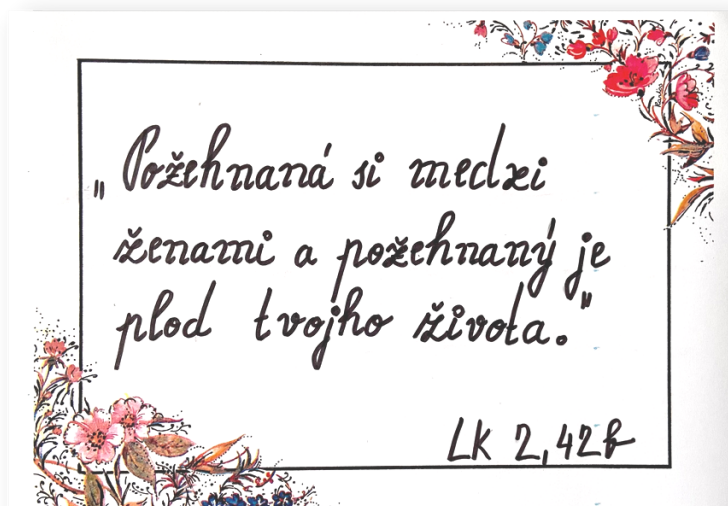 „Požehnaná si medzi
ženami a požehnaný je
plod tvojho života."
LK 2,42b